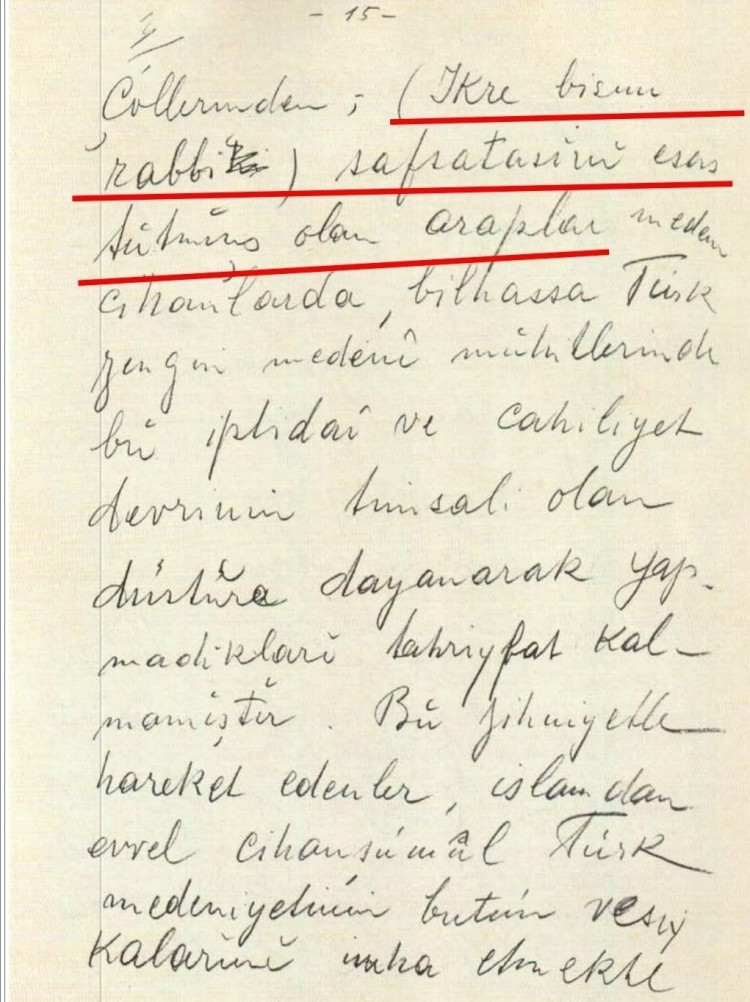 - 15-
Çöllerinden ; (Ikre bismi
rabbi ) safsatasını esas
tutmuş olan araplar meden
cihanlarda, bilhassa Türk
zengin medenî muhitlerinde
bu iptidaî ve cahiliyet
devrinin timsali olan
düstura dayanarak yap-
madıkları tahriyfat kal-
mamıştır. Bu zihniyetle
hareket edenler, islamdan
evvel cihanşümûl Türk
medeniyetinin bütün vesiy
kalarını imha etmekte